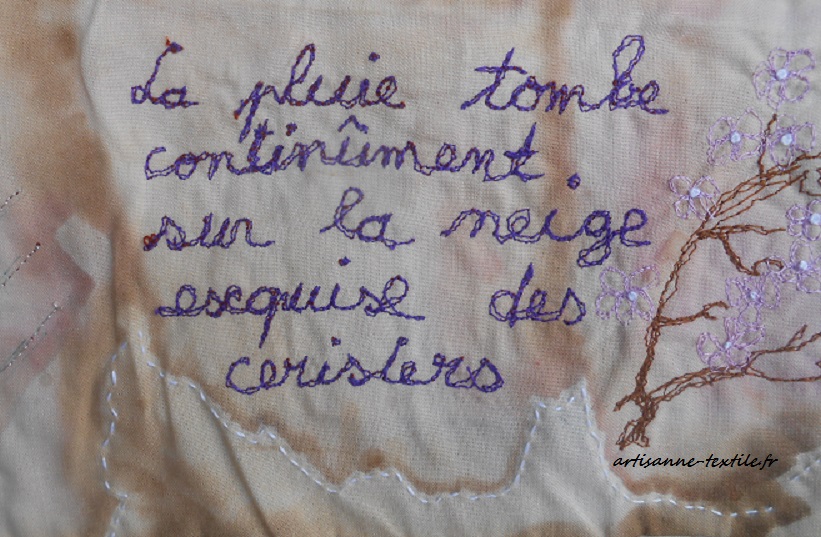 La pluie tombe
continûment.
sur la neige
exquise des
cerisiers
artisanne-textile.fr